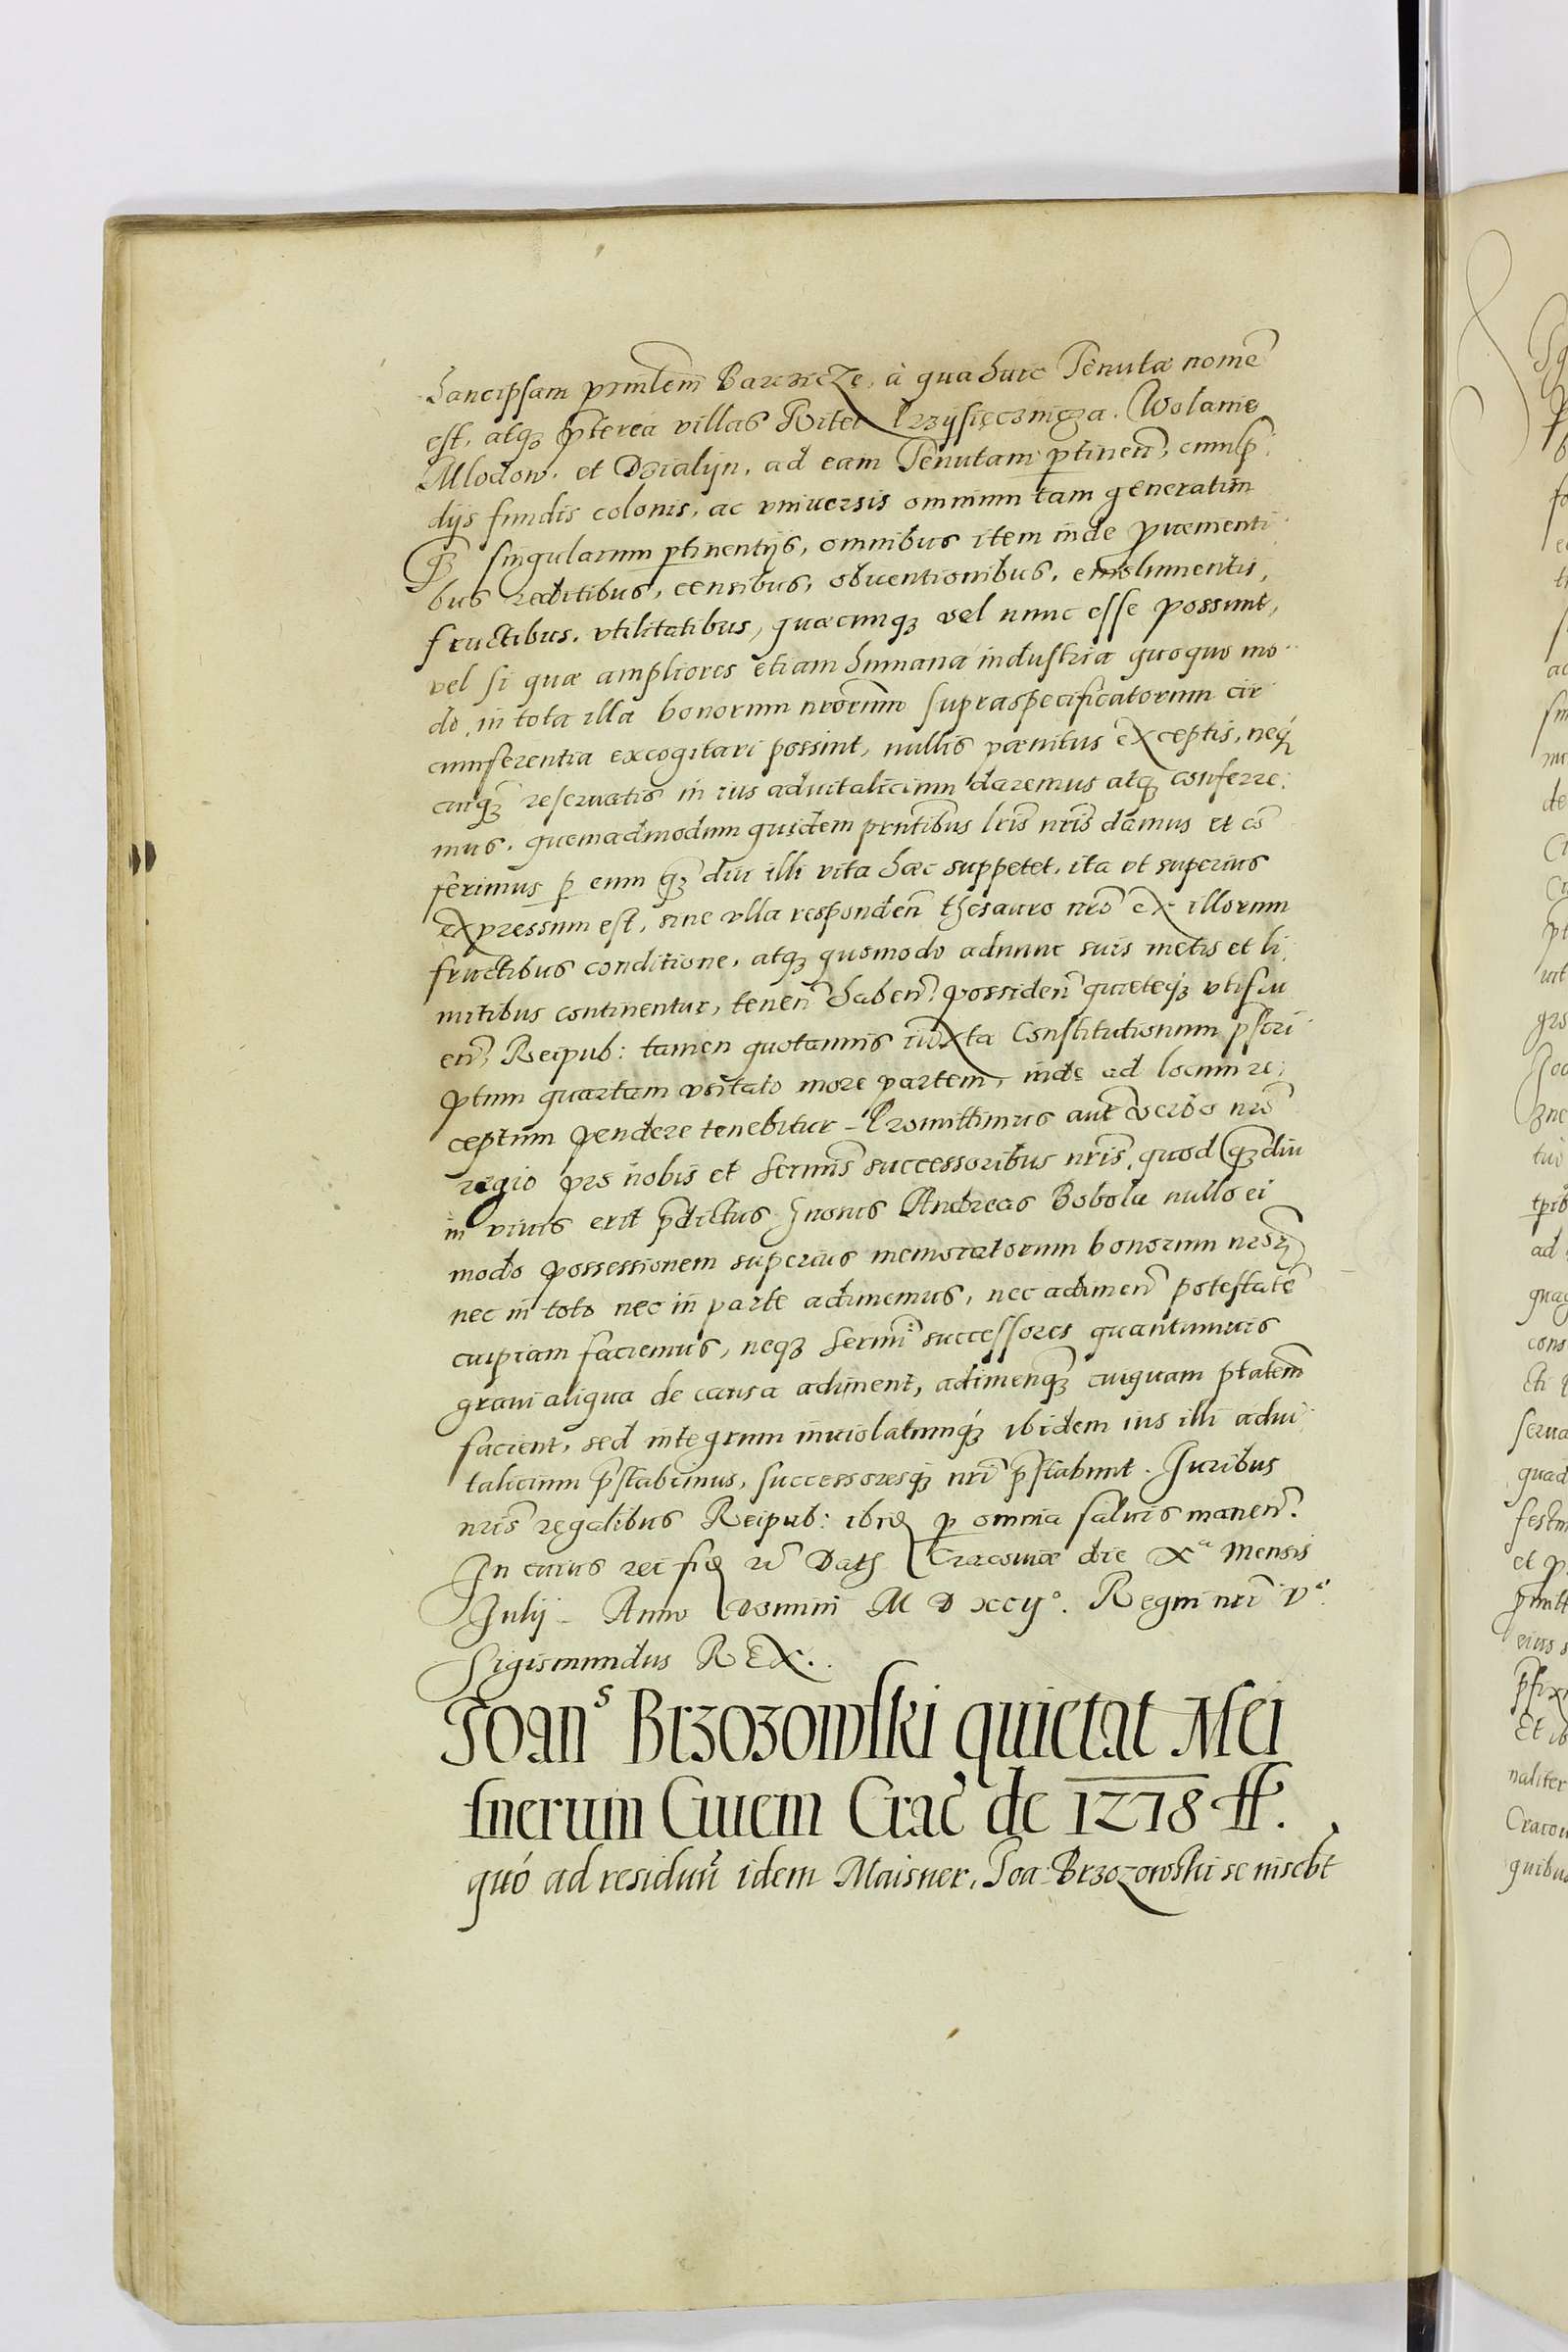 hancipsam prńtem Barcicze, à qua huic Tenutæ nomẽ
est, atq3 p̃terea villas Ritel Przÿsięcznicza. Wolanie
Mlodow. et Dzialÿn, ad eam Tenutam ptinen̄, cum
dijs fundis colonis, ac vniuersis omnium tam generatim
q̃3 singularum ptinentijs, omnibus item inde prouenienti
bus reditibus, censibus, obuentionibus, emolumentis,
fructibus. vtilitatibus, quæcunq3 vel nunc esse possunt,
vel si quæ ampliores etiam humana industria quoquo mo
do, in tota illa bonorum nrorum supraspecificatorum cir
cumferentia excogitari possint, nullis pænitus exceptis, neq3
cuiq̃3 reseruatis in ius aduitalicium daremus atq3 conferre:
mus. quemadmodum quidem prntibus lris nris damus et cõ
ferimus p eum q̃3 diu illi vita hæc suppetet, ita vt superius
expressum est, sine vlla responden̄ thesauro nrõ ex illorum
fructibus conditione, atq3 quomodo adnunc suis metis et li
mitibus continentur, tenen̄ haben̄. possiden̄ quieteq́3 vtifru
en̄, Reipub: tamen quotannis iuxta Constitutionum pscri
ptum quartam vsitato more partem, inde ad locum re:
ceptum pendere tenebitur - Promittimus aut̃ verbo nrõ
regio pro nobis et sermis successoribus nris, quod q̃3diu
in viuis erit p̃dictus gnosus Andreas Bobola nullo ei
modo possessionem superius memoratorum bonorum nror3
nec in toto nec in parte adimemus, nec adimen̄ potestatẽ
cuipiam faciemus, neq3 sermi successores quantumuis
graui aliqua de causa adiment, adimenq̃3 cuiquam ptatem
facient, sed integrum inuiolatumq́3 ibidem ius illi adui
talicium p̃stabimus, successoresq́3 nri p̃stabunt. Iuribus
nris regalibus Reipub: ibid3 p omnia saluis manen̄.
In cuius rei fid3 rc̃ Dat3 Cracouiæ die Xª Mensis
Julij - Anno Domini M D xcij°. Regni nri Vº.
Sigismundus REX.
Joanˢ Brzozowski quietat Mei
snerum Ciuem Crac̃ de 1278 ff.
quó ad residuũ idem Maisner, Joa: Brzozowski se inscbt̃